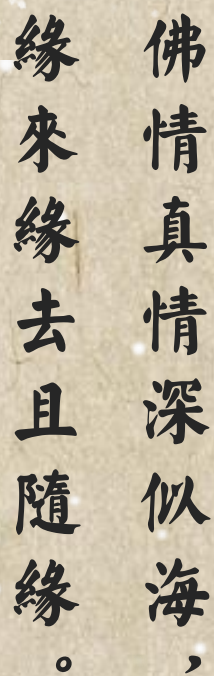 佛情真情深似海，
緣來緣去且隨緣。